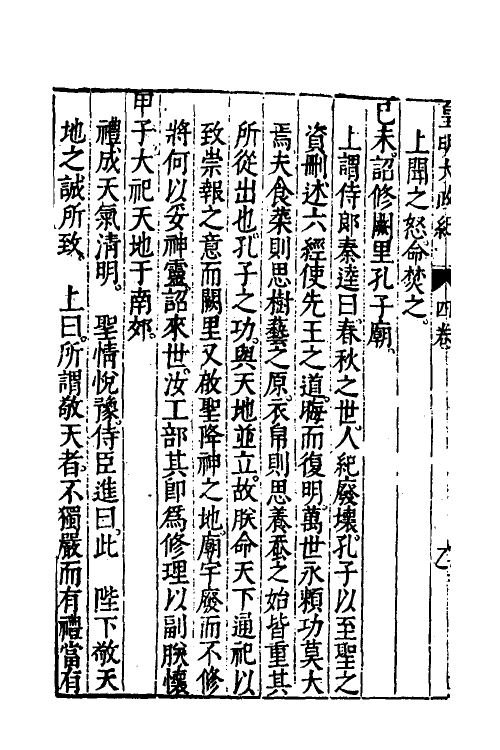 皇明大政紀 四卷
上聞之怒命焚之。
己未。詔修闕里孔子廟。
上謂侍郎秦逵曰。春秋之世。人紀廢壞。孔子以至聖之
資刪述六經使先王之道。晦而復明。萬世永頼功莫大
焉夫食粟則思樹藝之原。衣帛則思養蚕之始皆重其
所從出也。孔子之功。與天地並立。故朕命天下通祀以
致崇報之意而闕里又啟聖降神之地。廟宇廢而不修
將何以妥神靈。詔來世。汝工部其即爲修理以副朕懷
甲子。大祀天地于南郊。
禮成天氣清明。 聖情悅豫。侍臣進曰。此 陛下敬天
地之誠所致。 上曰。所謂敬天者。不獨嚴而有禮當有